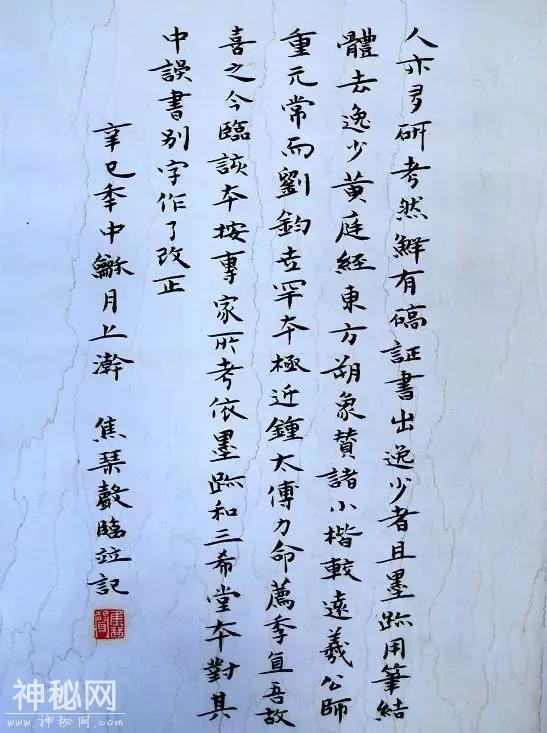 人亦多研考然鮮有碻証書出逸少者且墨跡用筆結
體去逸少黄庭經東方朔象賛諸小楷較遠羲公師
重元常而劉鈞𠫵罕本極近鍾太傅力命薦季直吾故
喜之今臨該本按專家所考依墨跡和三希堂本對其
中誤書别字作了改正
辛巳季中龢月上澣 焦琹聲臨竝記
神秘网
www.神秘网.com